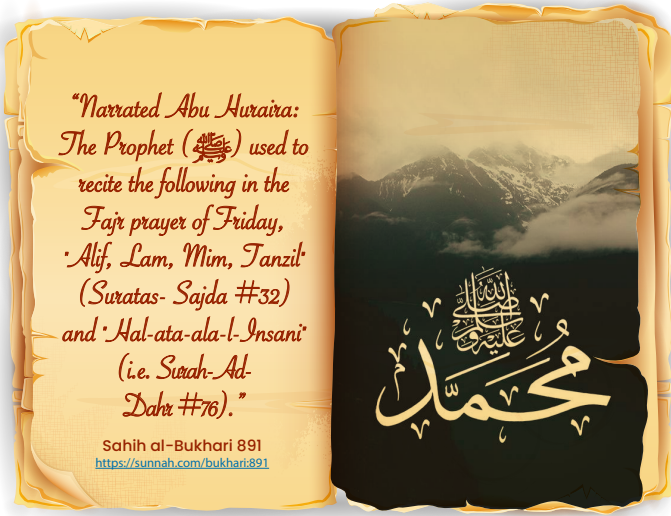 “Narrated Abu Huraira:
The Prophet (ﷺ) used to
recite the following in the
Fajr prayer of Friday,
"Alif, Lam, Mim, Tanzil"
(Suratas- Sajda #32)
and "Hal-ata-ala-l-Insani"
(i.e. Surah-Ad-
Dahr #76).”
Sahih al-Bukhari 891
https://sunnah.com/bukhari:891
صلى الله عليه وسلم
محمد